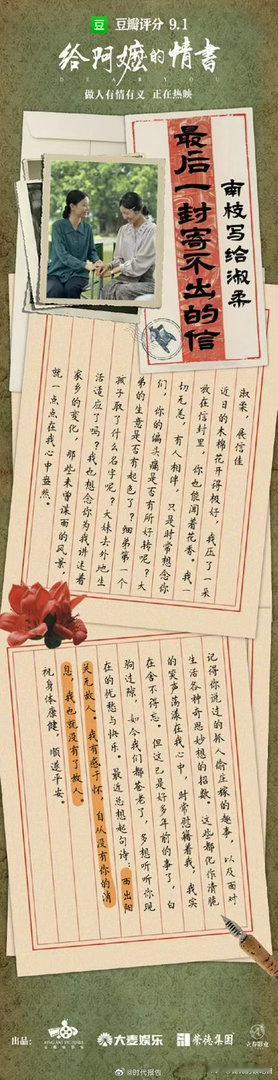 豆 豆瓣评分 9.1
给阿嬷的情書
DEAR YOU
做人有情有义 正在热映
南枝写给淑柔
最后一封寄不出的信
淑柔，展信佳
近日的木棉花开得极好，我压了一朵
放在信封里，你也能闻着花香。我一
切无恙，有人相伴，只是时常想念你
们，你的偏头痛是否有所好转呢？大
弟的生意是否有起色了？细弟第一个
孩子取了什么名字呢？大妹去外地生
活适应了吗？我也想念你为我讲述着
家乡的变化，那些未曾谋面的风景，
就一点点在我心中盎然。
记得你说过的抓人偷庄稼的趣事，以及面对
生活各种奇思妙想的招数。这些都化作清脆
的笑声荡漾在我心中，时常慰藉着我，我实
在舍不得忘。但这已是好多年前的事了，白
驹过隙，如今我们都苍老了，多想听听你现
在的忧愁与快乐。最近总想起句诗：西出阳
关无故人。我有感于怀，自从没有你的消
息，我也就没有了故人。
祝身体康健，顺遂平安。
出品：
大麦娱乐
荣德集团
立春影业
@时代报告